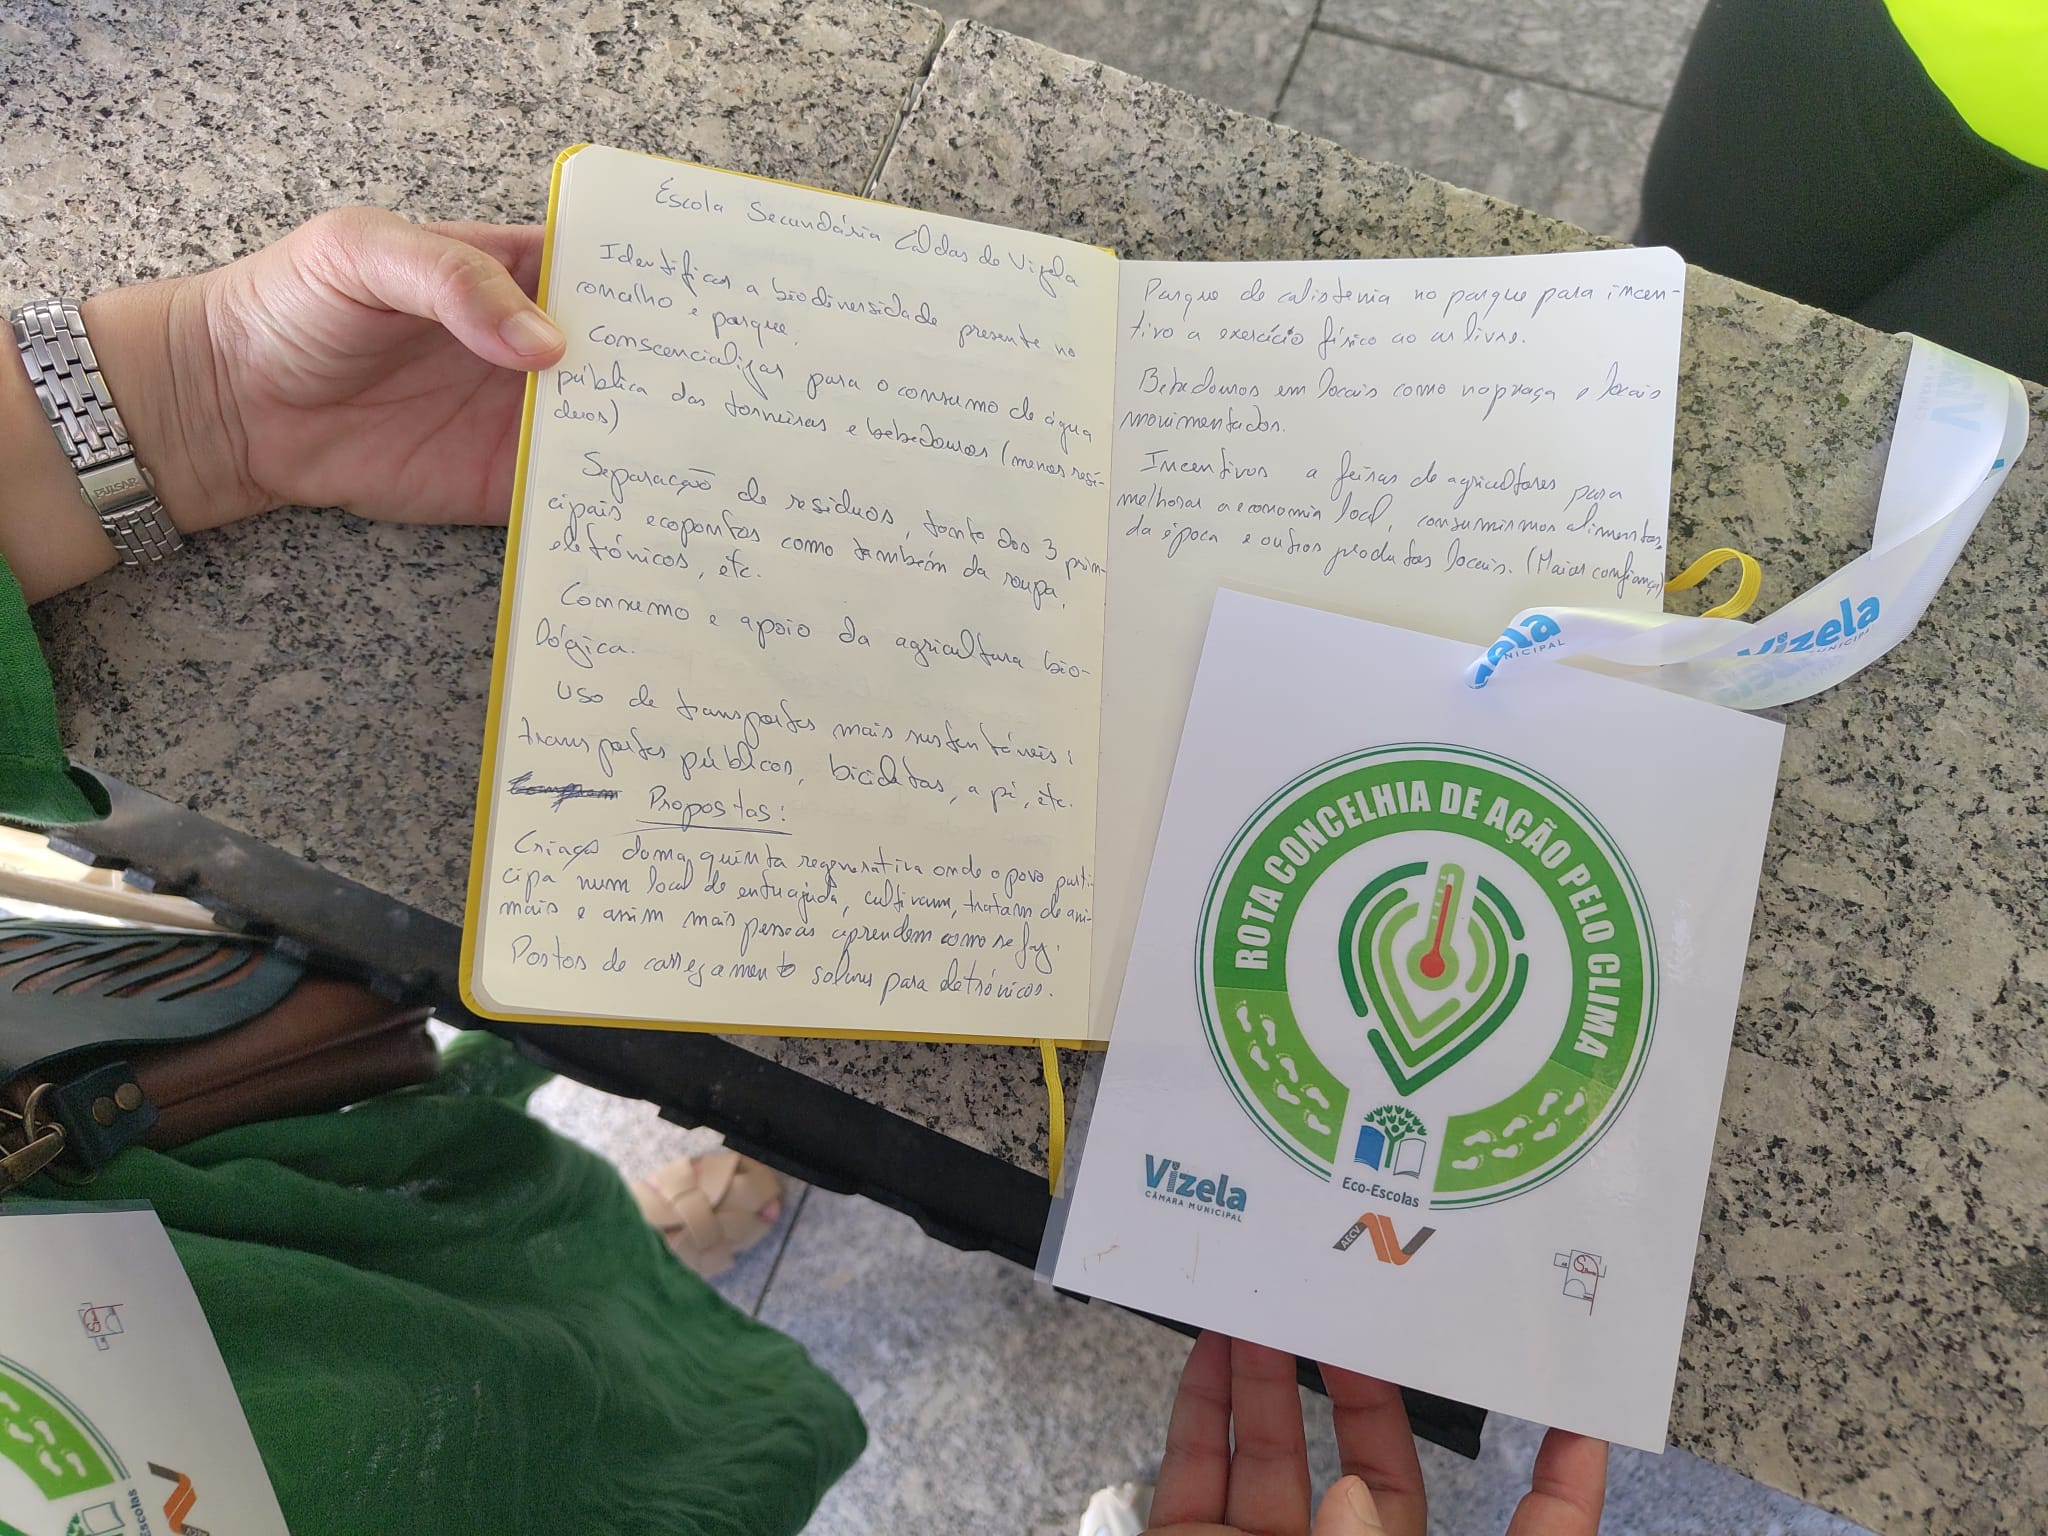 Escola Secundária Caldas de Vizela
Identificar a biodiversidade presente no
concelho e parque.
Conscencializar para o consumo de água
pública das torneiras e bebedouros (menos resí-
duos)
Separação de resíduos, tanto dos 3 prin-
cipais ecopontos como também da roupa,
eletrónicos, etc.
Consumo e apoio da agricultura bio-
lógica.
Uso de transportes mais sustentáveis:
transportes públicos, bicicletas, a pé, etc.
Propostas:
Criação duma quinta regenerativa onde o povo parti-
cipa num local de entreajuda, cultivam, tratam de ani-
mais e assim mais pessoas aprendem como se faz.
Postos de carregamento solares para eletrónicos.
Parque de calistenia no parque para incen-
tivo a exercício físico ao ar livre.
Bebedouros em locais como na praça e locais
movimentados.
Incentivos a feiras de agricultores para
melhorar a economia local, consumirmos alimentos
da época e outros produtos locais. (Maior confiança)
Vizela
MUNICIPAL
ela
NICIPAL
ROTA CONCELHIA DE AÇÃO PELO CLIMA
Eco-Escolas
Vizela
CÂMARA MUNICIPAL
AECV
PULSAR
Escolas